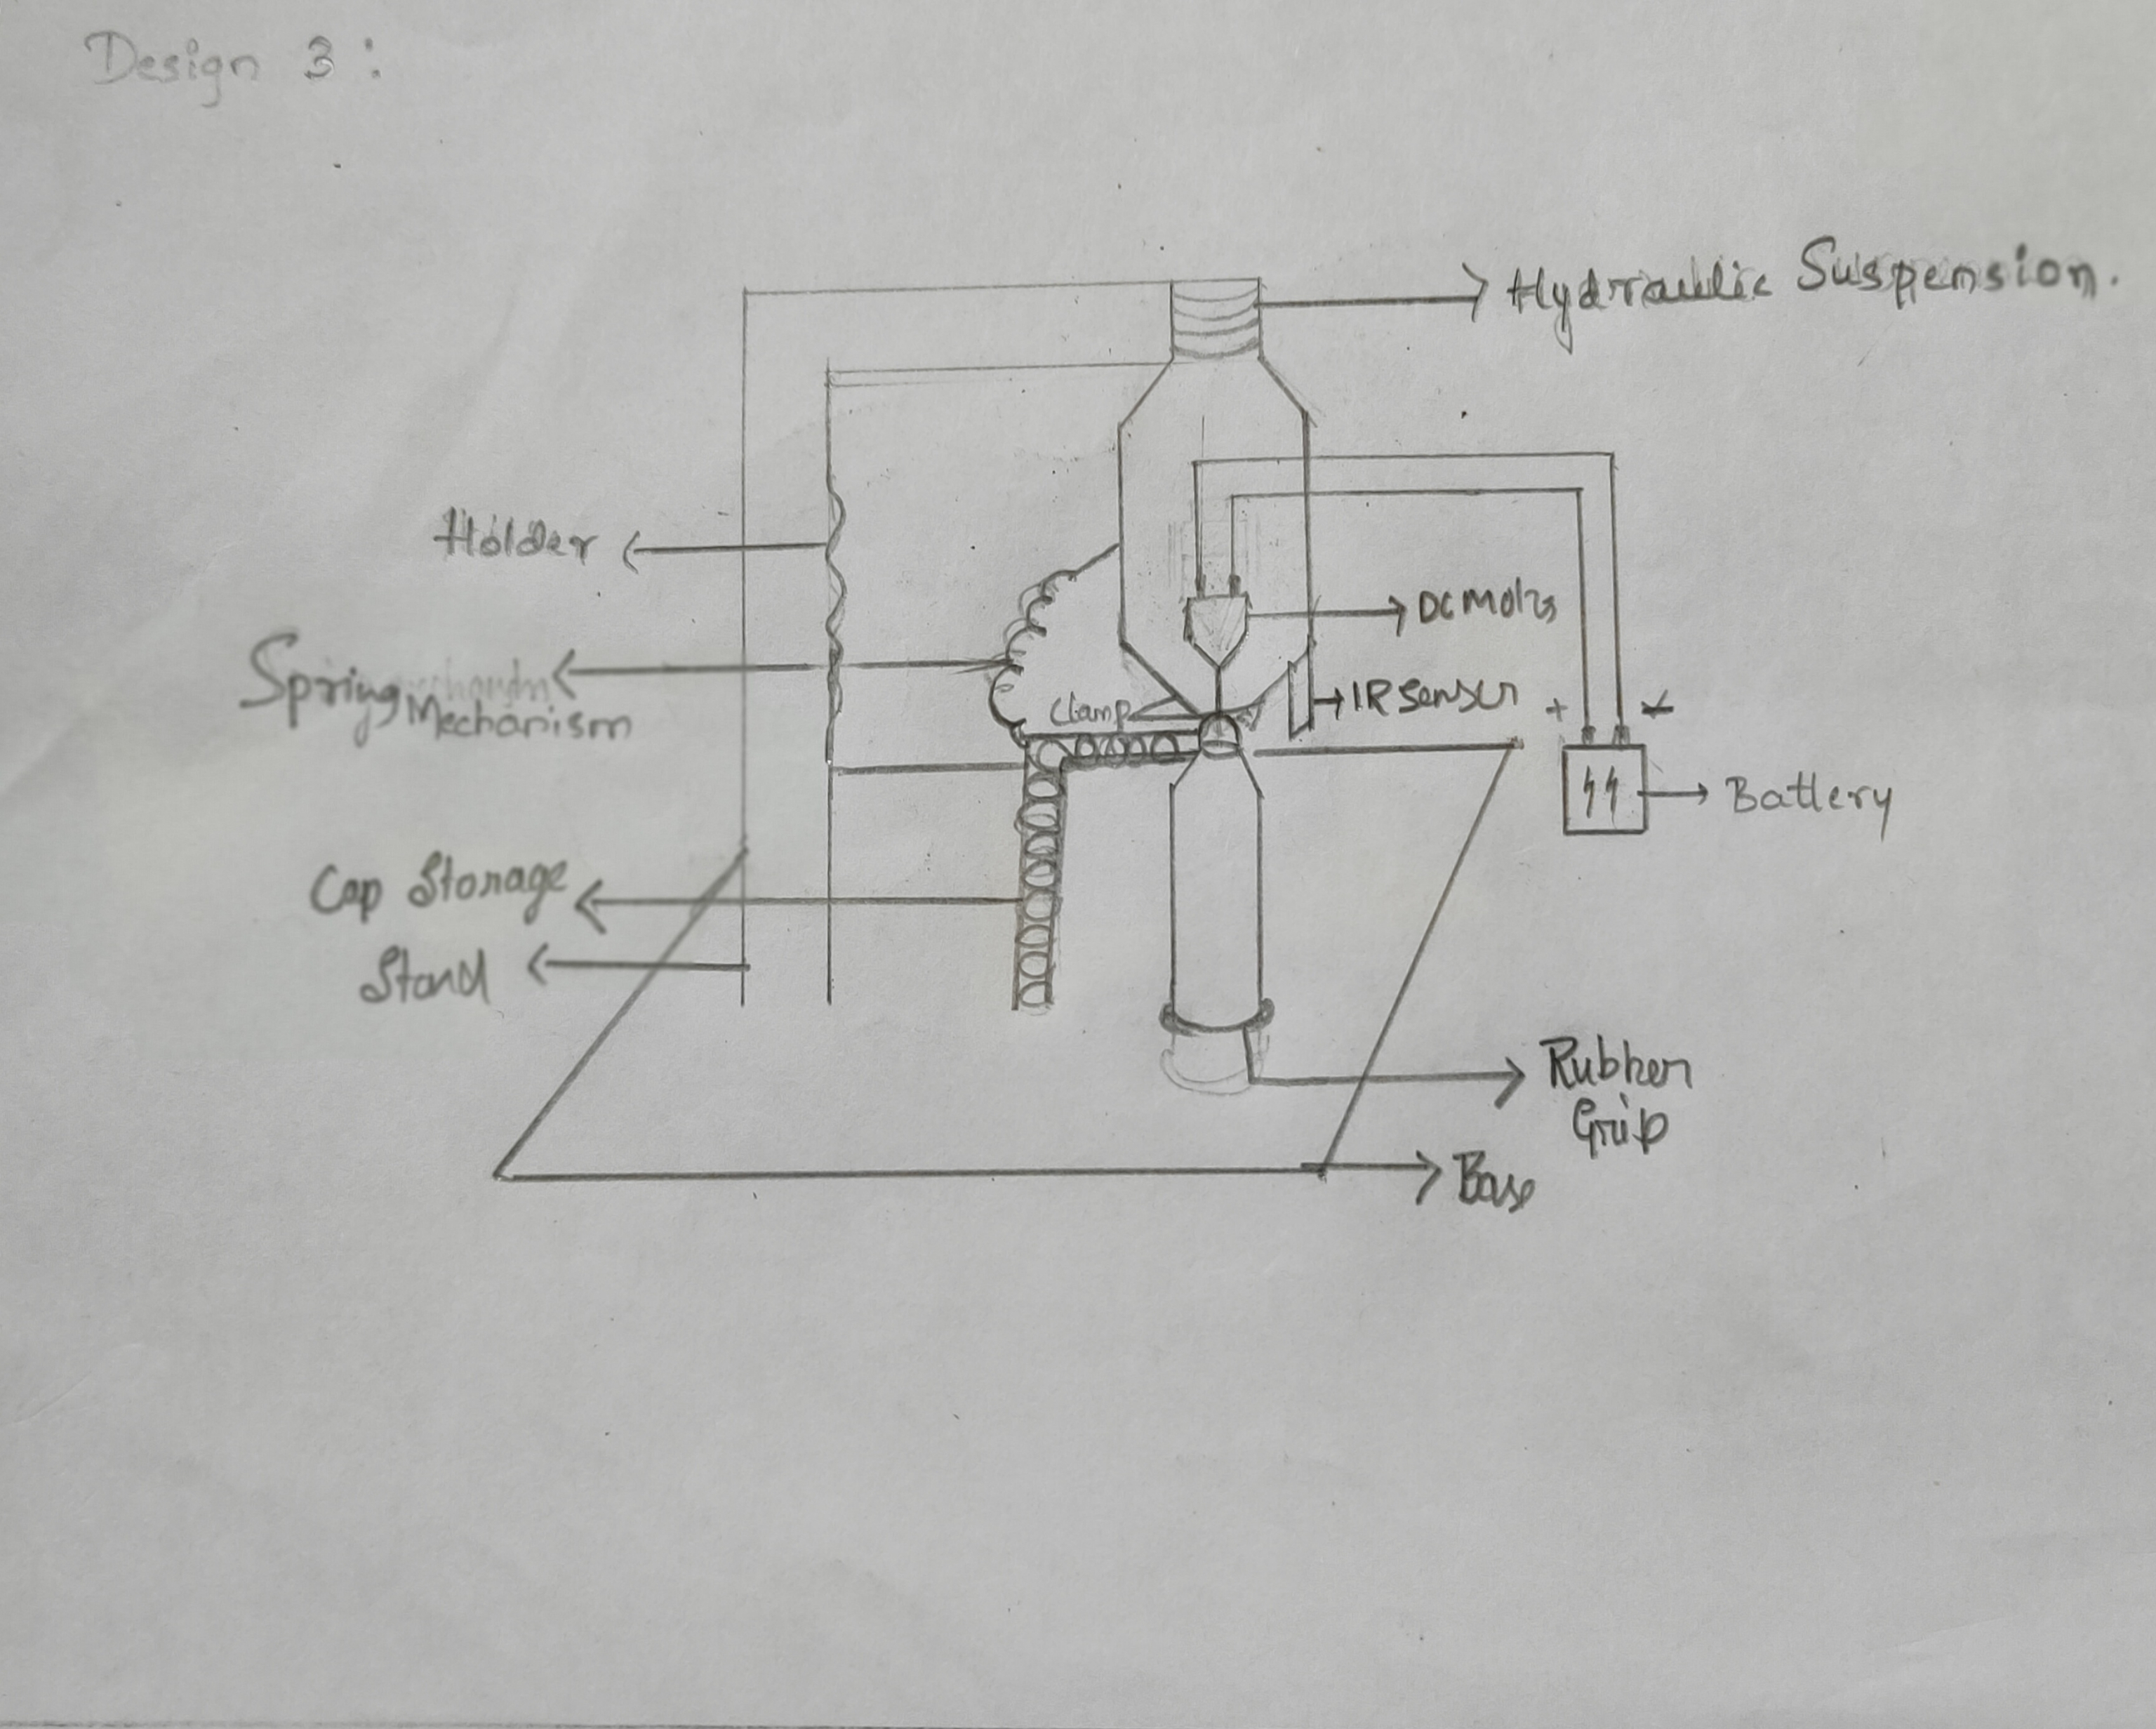 Design 3:
Hydraulic Suspension.
Holder
DC Motor
Spring
Mechanism
Clamp
IR Sensor
+
Battery
Cap Storage
Stand
Rubber
Grip
Base